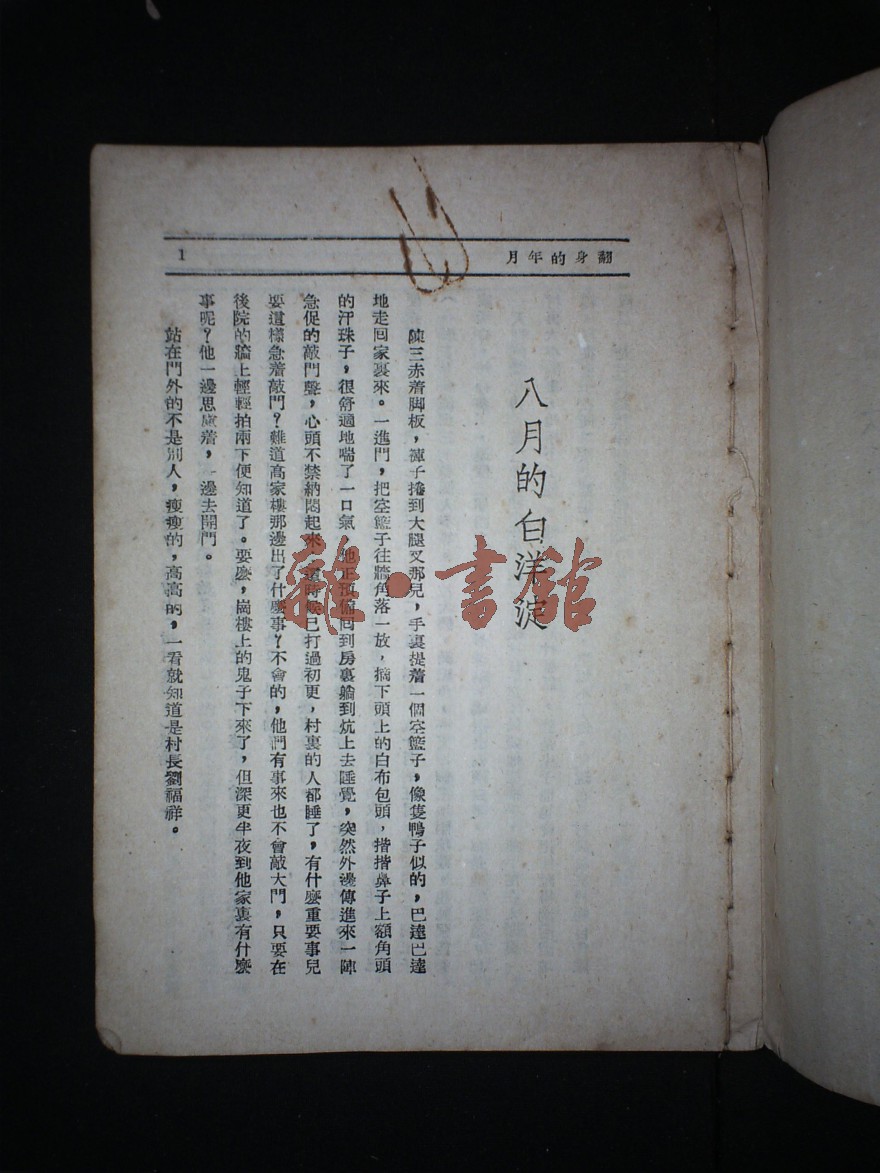 翻身的年月
1
八月的白洋淀
陳三赤着脚板，褲子捲到大腿叉那兒，手裏提着一個空籃子，像隻鴨子似的，巴達巴達
地走回家裏來。一進門，把空籃子往牆角落一放，摘下頭上的白布包頭，揩揩鼻子上額角頭
的汗珠子，很舒適地喘了一口氣 他正預備囘到房裏躺到炕上去睡覺，突然外邊傳進來一陣
急促的敲門聲，心頭不禁納悶起來 這時候已打過初更，村裏的人都睡了，有什麼重要事兒
要這樣急着敲門？難道高家樓那邊出了什麼事？不會的，他們有事來也不會敲大門，只要在
後院的牆上輕輕拍兩下便知道了。要麼，崗樓上的鬼子下來了，但深更半夜到他家裏有什麼
事呢？他一邊思慮着，一邊去開門。
站在門外的不是別人，瘦瘦的，高高的，一看就知道是村長劉福祥。
雜·書館